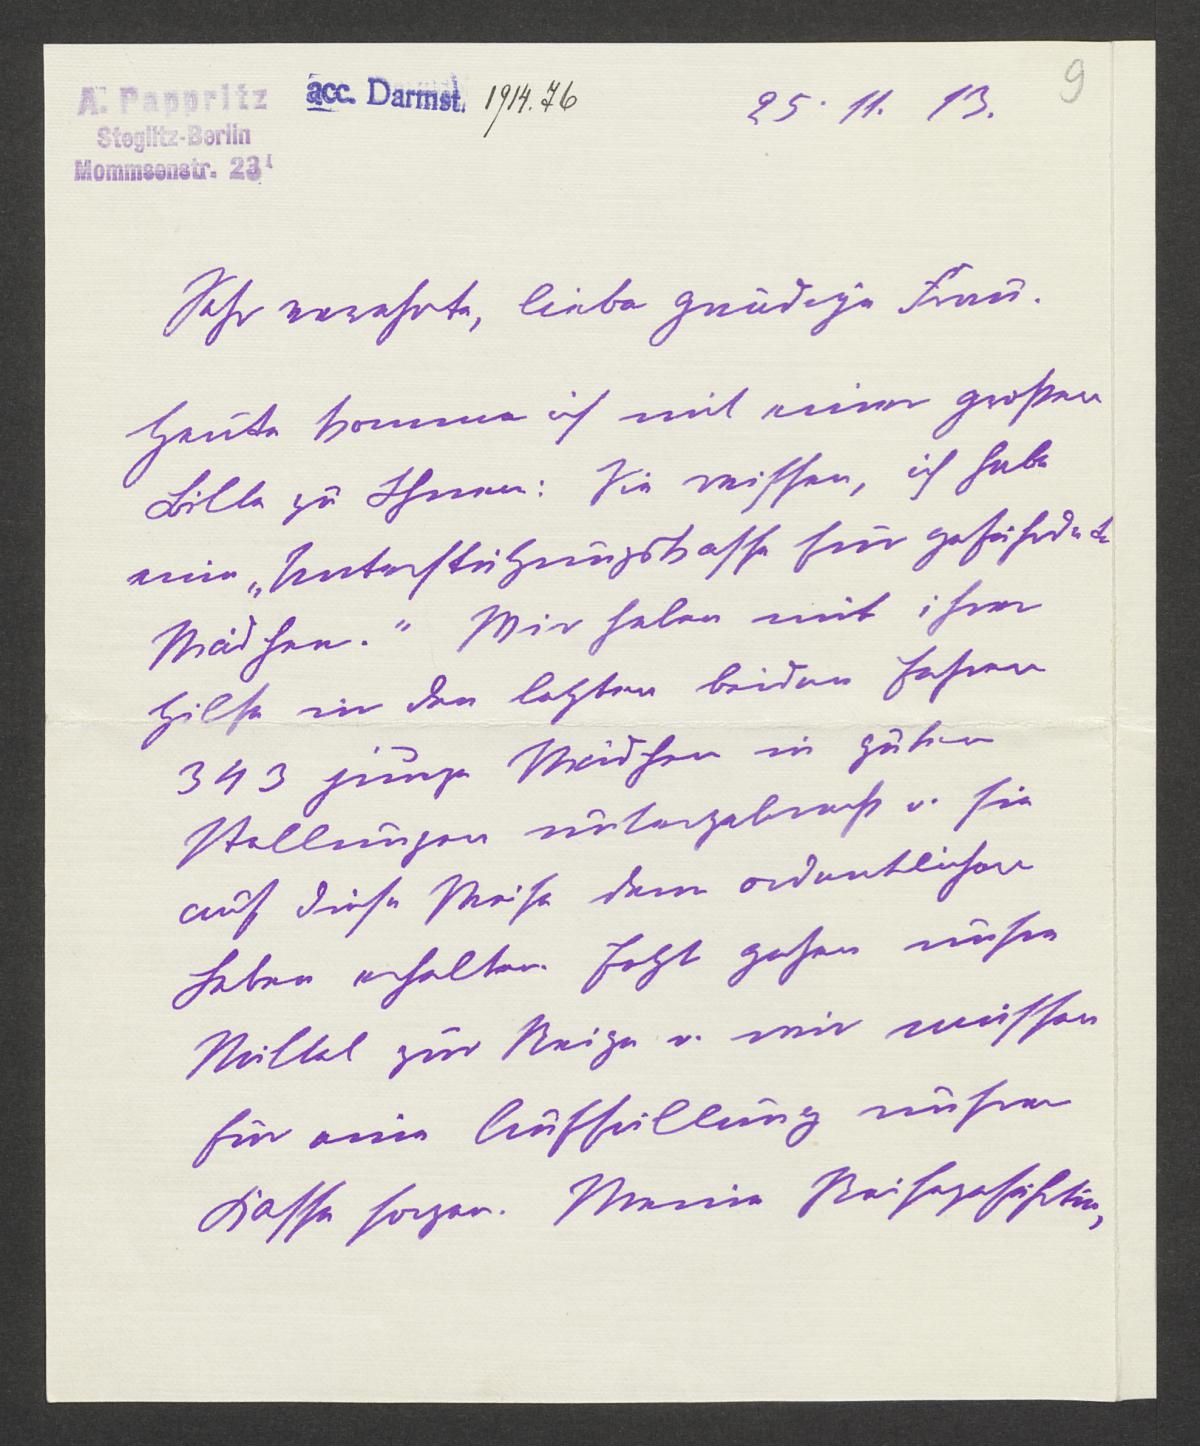 A. Pappritz
Steglitz-Berlin
Mommsenstr. 23 I
acc. Darmst. 1914.76
25. 11. 13.
9
Sehr verehrte, liebe gnädige Frau.
Heute komme ich mit einer großen
Bitte zu Ihnen: Sie wissen, ich habe
eine „Unterstützungskasse für gefährdete
Mädchen.“ Wir haben mit ihrer
Hilfe in den letzten beiden Jahren
343 junge Mädchen in guten
Stellungen untergebracht u. sie
auf diese Weise dem ordentlichen
Leben erhalten. Jetzt gehen unsre
Mittel zur Neige u. wir müssen
für eine Auffüllung unsrer
Kasse sorgen. Meine Reisegefährtin,